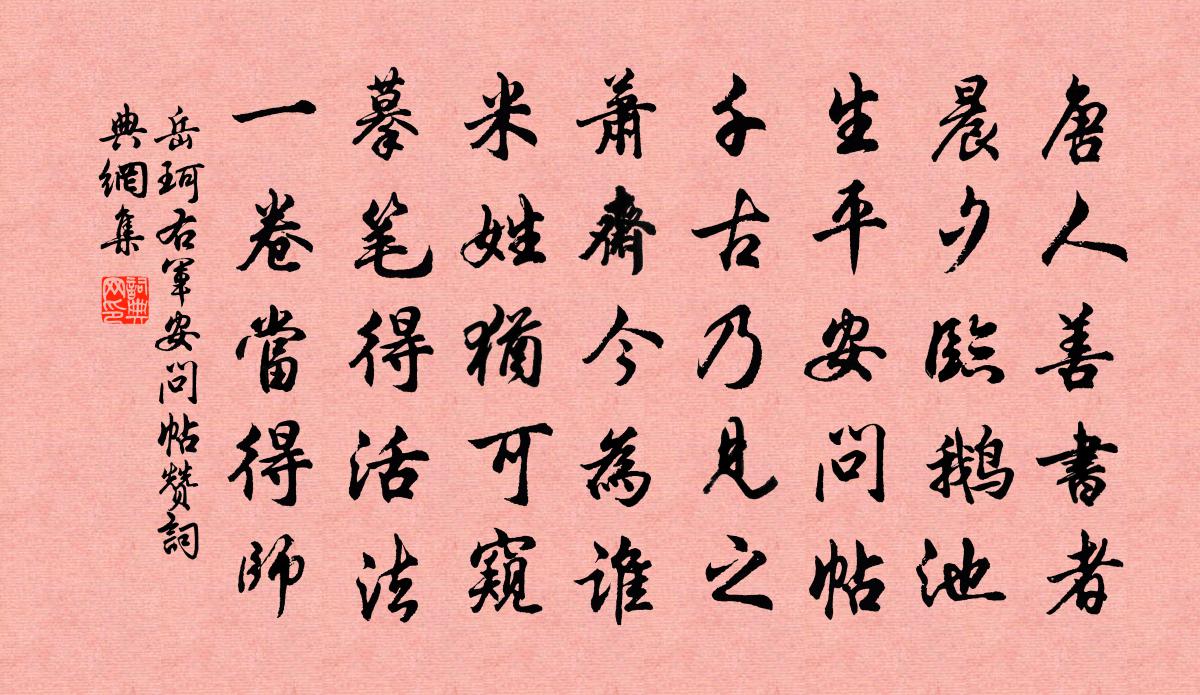 唐人善書者
晨夕臨鵝池
生平安問帖
千古乃見之
蕭齋今為誰
米姓猶可窺
摹笔得活法
一卷當得師
岳珂右軍安問帖赞詞
典網集
詞典
网印